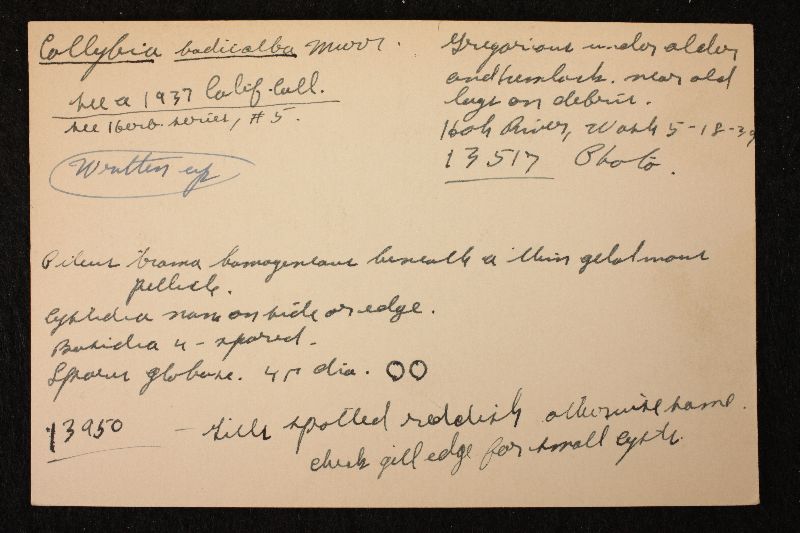 Collybia badicalba Murr.
see a 1937 Calif. Coll.
see Herb. series, #5.
Written up
Gregarious under alder
and hemlock. near old
logs on debris.
Hoh River, Wash 5-18-39
13517 Photo.
Pileus trama homogeneous beneath a thin gelatinous
pellicle.
Cystidia none on side or edge.
Basidia 4-spored.
Spores globose. 4-5 dia.
13950 — Gills spotted reddish otherwise same.
check gill edge for small cyst.